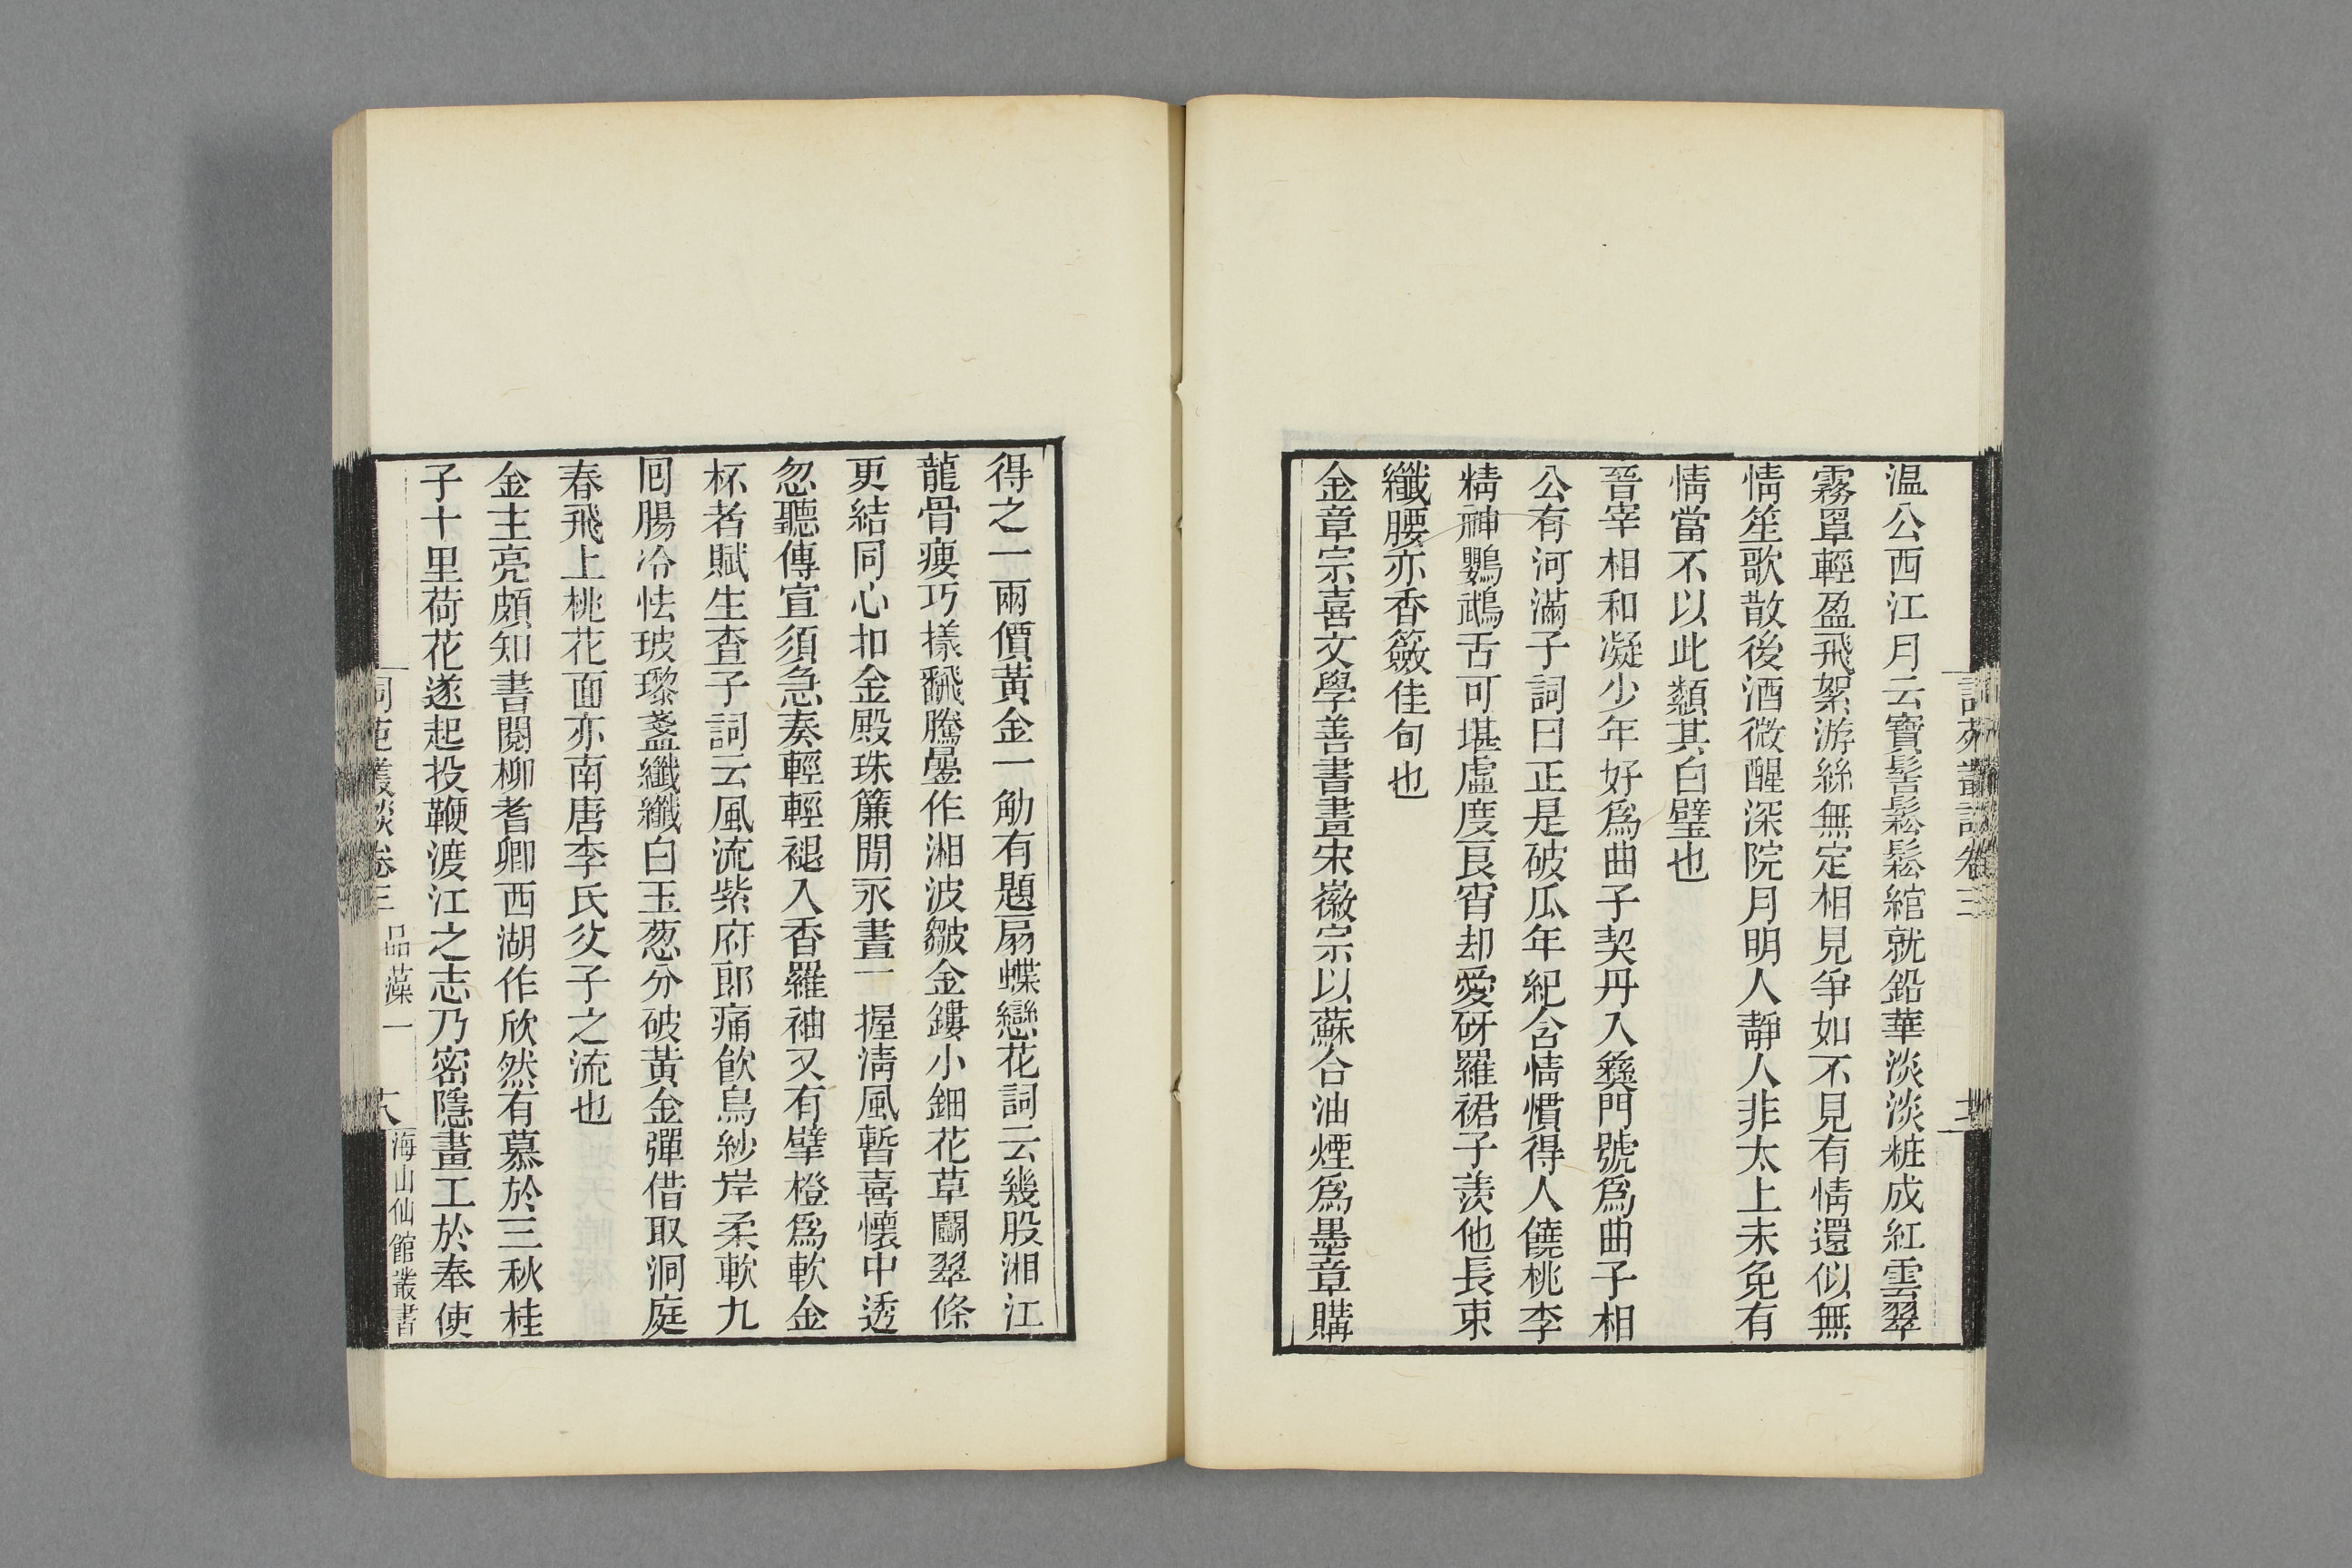 温公西江月云寶髻鬆鬆綰就鉛華淡淡粧成紅雲翠
霧罩輕盈飛絮游絲無定相見爭如不見有情還似無
情笙歌散後酒微醒深院月明人靜人非太上未免有
情當不以此纇其白璧也
晉宰相和凝少年好爲曲子契丹入彝門號爲曲子相
公有河滿子詞曰正是破瓜年紀含情慣得人饒桃李
精神鸚鵡舌可堪虛度良宵却愛砑羅裙子羨他長束
纖腰亦香籢佳句也
金章宗喜文學善書畫宋徽宗以蘇合油煙爲墨章購
得之一兩價黃金一觔有題扇蝶戀花詞云幾股湘江
龍骨瘦巧樣翻騰曡作湘波皺金鏤小鈿花草鬬翠條
更結同心扣金殿珠簾閒永晝一握淸風暫喜懷中透
忽聽傳宣須急奏輕輕褪入香羅袖又有擘橙爲軟金
杯者賦生查子詞云風流紫府郎痛飮烏紗岸柔軟九
囘腸冷怯玻瓈盞纖纖白玉葱分破黃金彈借取洞庭
春飛上桃花面亦南唐李氏父子之流也
金主亮頗知書閱柳耆卿西湖作欣然有慕於三秋桂
子十里荷花遂起投鞭渡江之志乃密隱畫工於奉使
詞苑叢談卷三 品藻一 海山仙館叢書